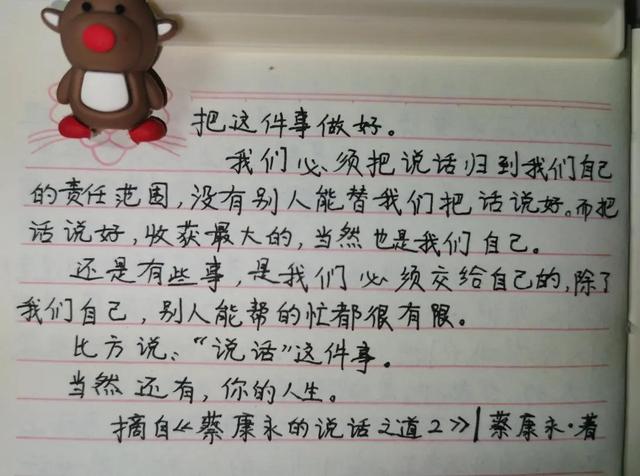 把这件事做好。
我们必须把说话归到我们自己
的责任范围,没有别人能替我们把话说好。而把
话说好,收获最大的,当然也是我们自己。
还是有些事,是我们必须交给自己的,除了
我们自己,别人能帮的忙都很有限。
比方说:“说话”这件事。
当然还有,你的人生。
摘自《蔡康永的说话之道2》|蔡康永·著